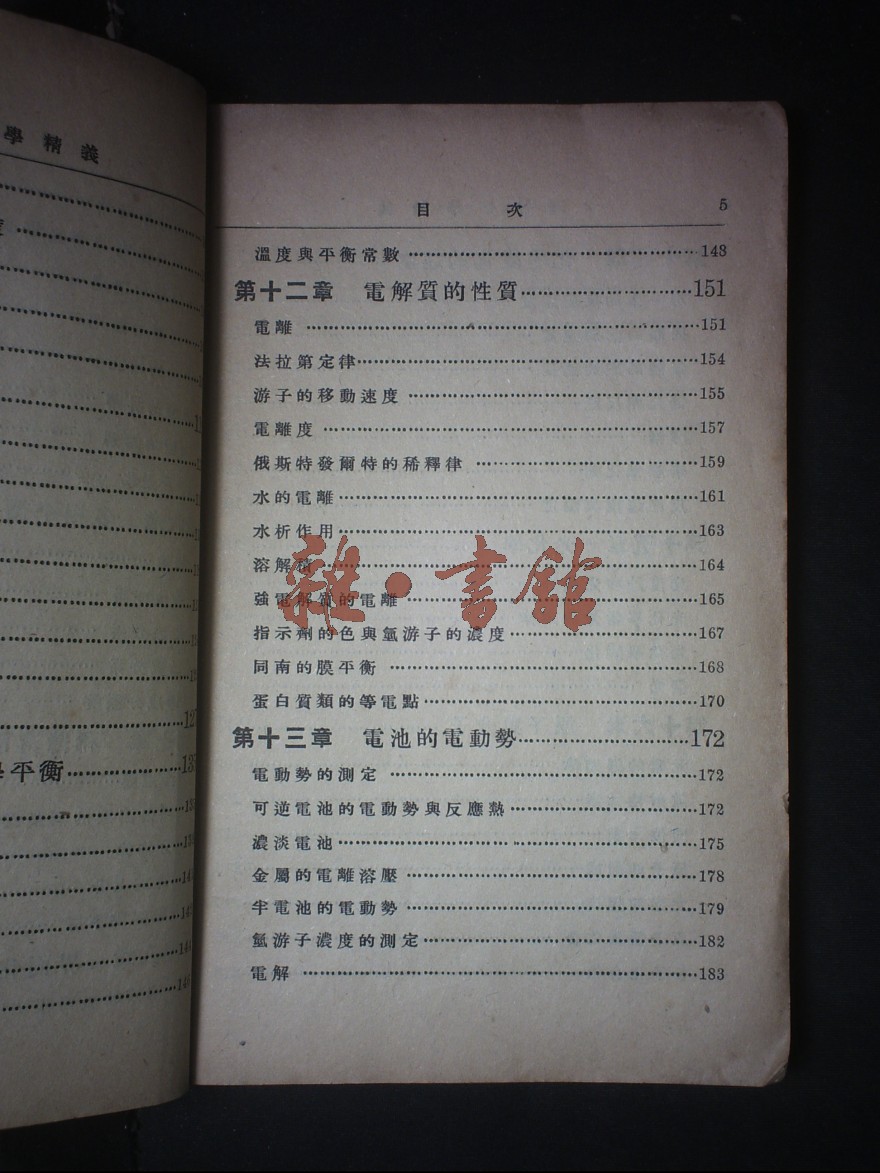 學精義
127
平衡
144
目 次 5
溫度與平衡常數 148
第十二章 電解質的性質 151
電離 151
法拉第定律 154
游子的移動速度 155
電離度 157
俄斯特發爾特的稀釋律 159
水的電離 161
水析作用 163
溶解積 164
強電解質的電離 165
指示劑的色與氫游子的濃度 167
同南的膜平衡 168
蛋白質類的等電點 170
第十三章 電池的電動勢 172
電動勢的測定 172
可逆電池的電動勢與反應熱 172
濃淡電池 175
金屬的電離溶壓 178
半電池的電動勢 179
氫游子濃度的測定 182
電解 183
雜·書舘